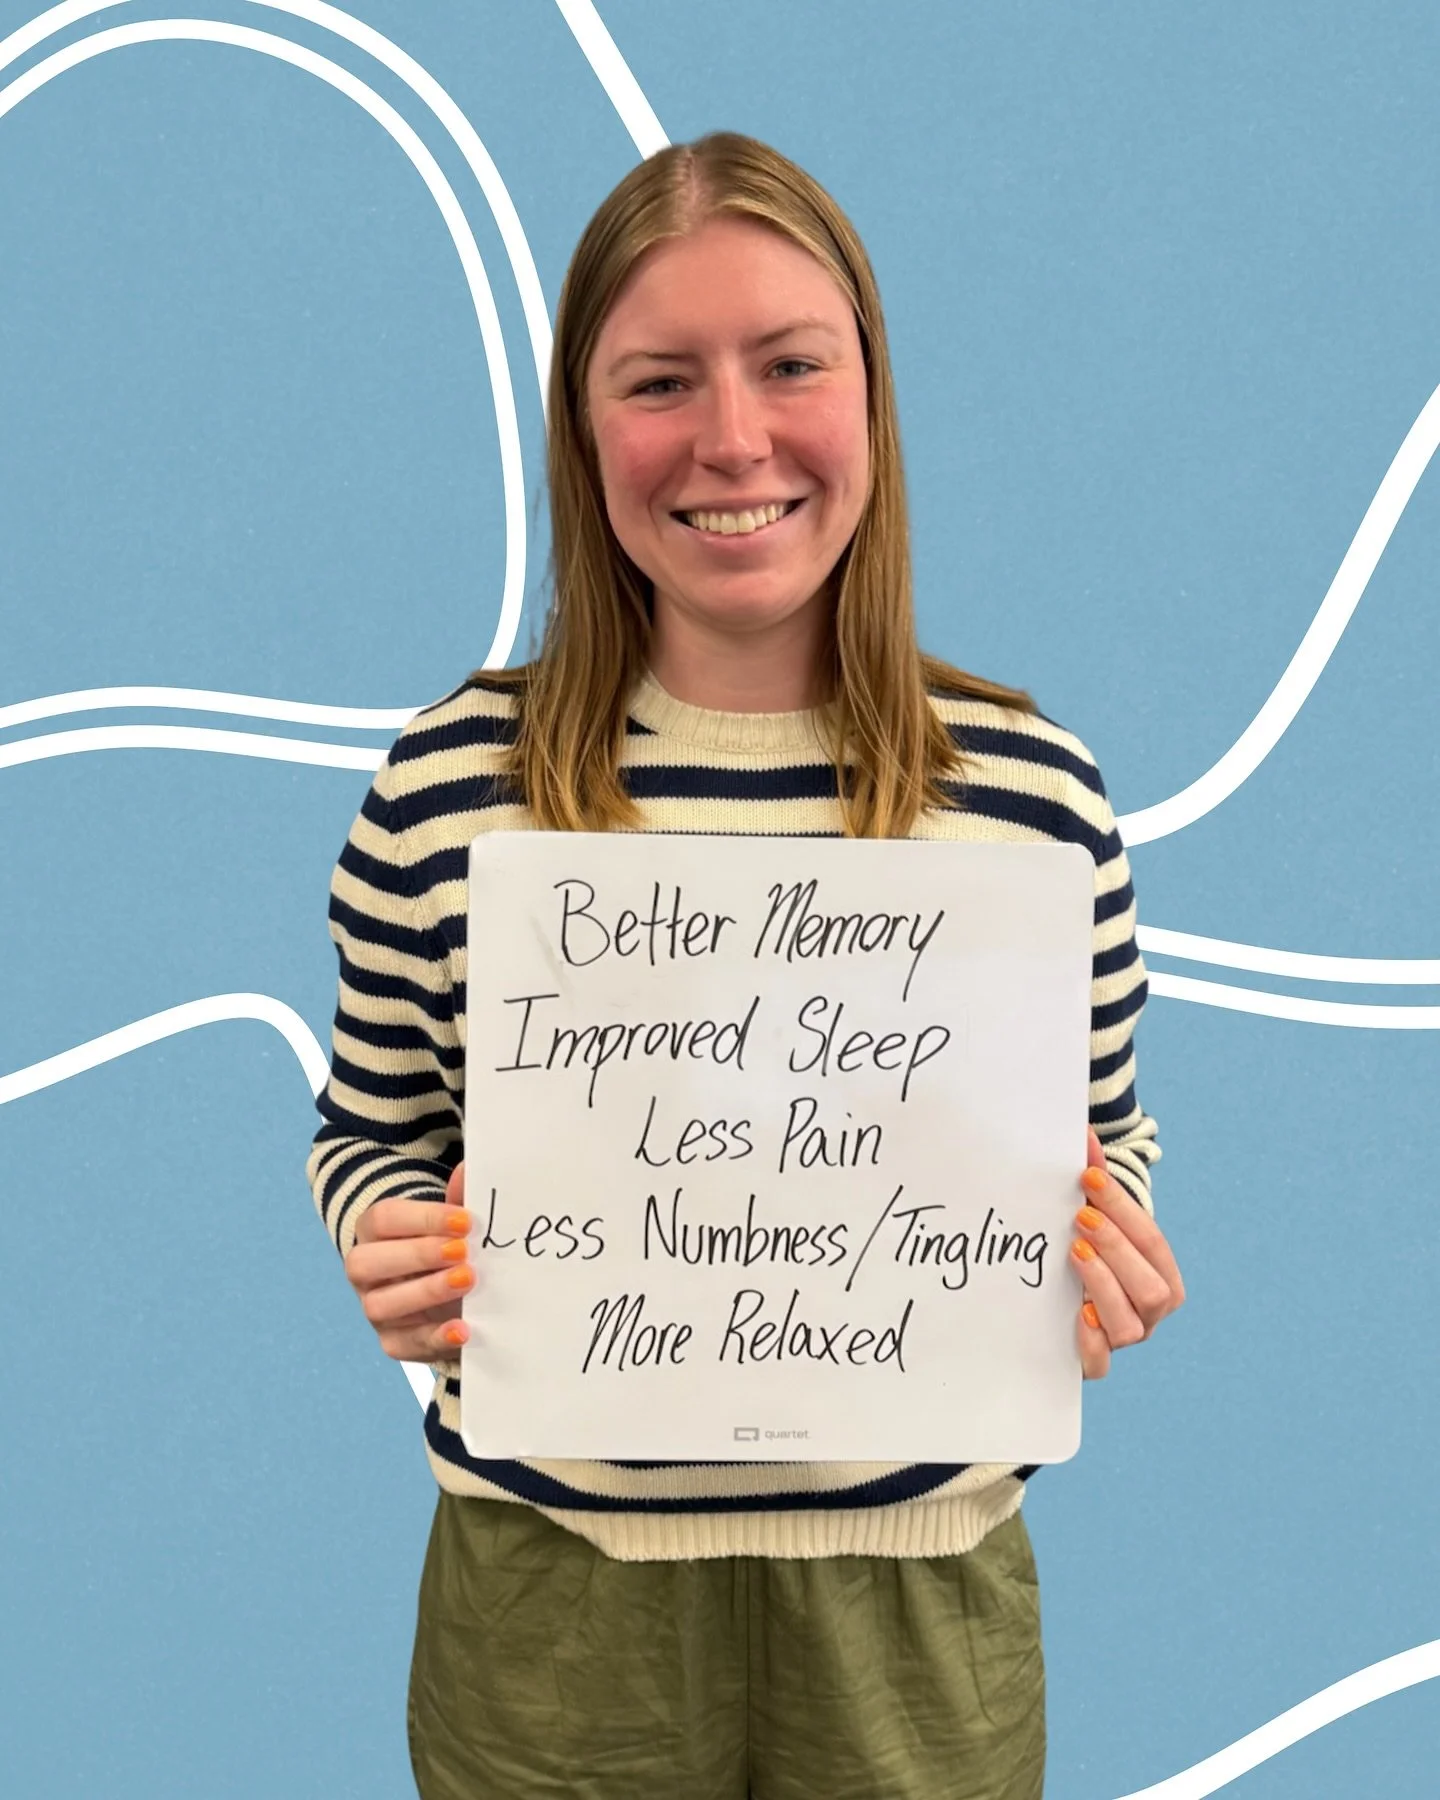 Better Memory
Improved Sleep
Less Pain
Less Numbness/Tingling
More Relaxed
quartet